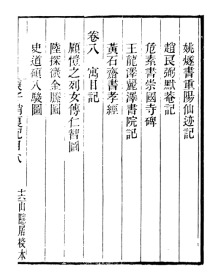 姚燧書重陽仙迹記
趙良弼默菴記
危素書崇國寺碑
王龍澤麗澤書院記
黃石齋書孝經
卷八 寓目記
顧愷之列女傳仁智圖
陸探微金縢圖
史道碩八駿圖